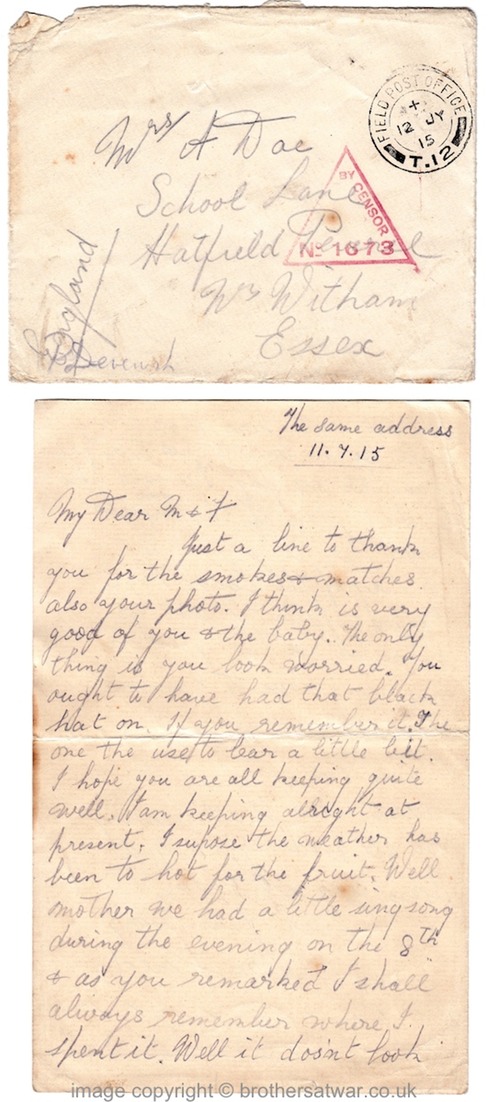 FIELD POST OFFICE
12 JY
15
T.12
Mrs A Doe
School Lane
BY CENSOR
No 1673
Hatfield Peverel
Nr Witham
Essex
England
B Devenish
The same address
11.7.15
My Dear M & F
Just a line to thank
you for the smokes & matches
also your photo. I think is very
good of you & the baby. The only
thing is you look worried. You
ought to have had that black
hat on. If you remember it. The
one the use to bear a little bit.
I hope you are all keeping quite
well. I am keeping alright at
present. I supose the weather has
been to hot for the fruit. Well
mother we had a little singsong
during the evening on the 8th
& as you remarked I shall
always remember where I
spent it. Well it dosn't look
image copyright © brothersatwar.co.uk